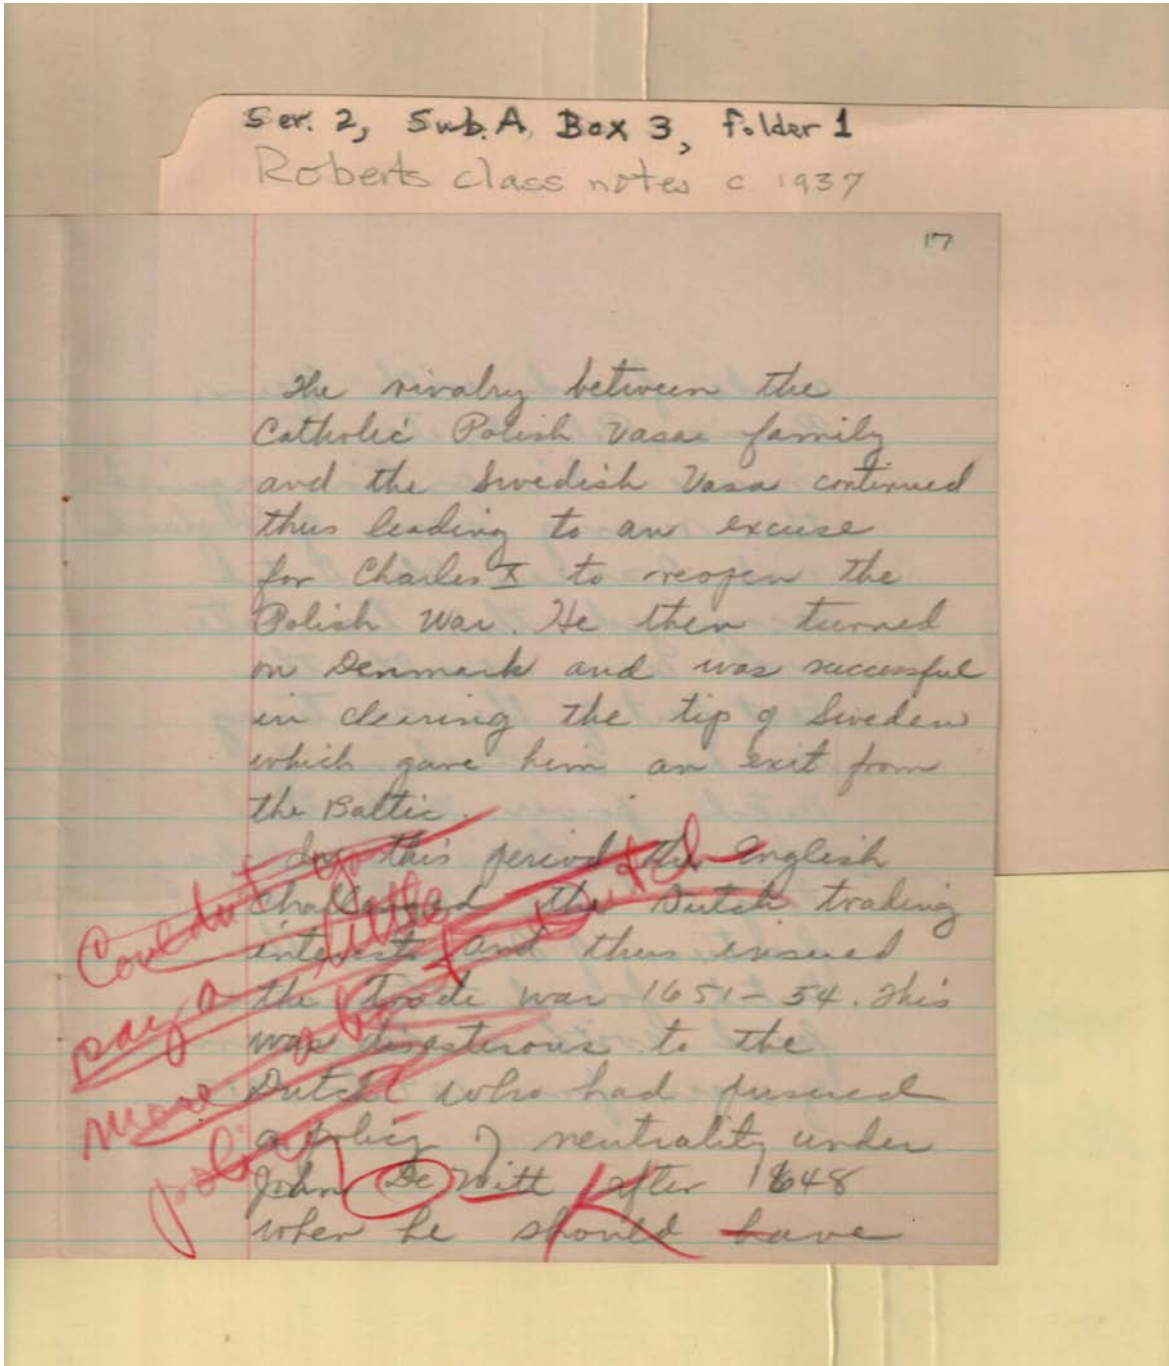 Ser. 2, Sub. A, Box 3, folder 1
Roberts class notes c 1937
17
The rivalry between the
Catholic Polish Vasa family
and the Swedish Vasa continued
thus leading to an excuse
for Charles X to reopen the
Polish War. He then turned
on Denmark and was successful
in clearing the tip of Sweden
which gave him an exit from
the Baltic.
this period the English
challenged the Dutch trading
interests and thus ensued
the Trade war 1651-54. This
was disasterous to the
Dutch who had pursued
a policy of neutrality under
John De Witt after 1648
when he should have
Couldn't you
say a little
more about Dutch
policy?